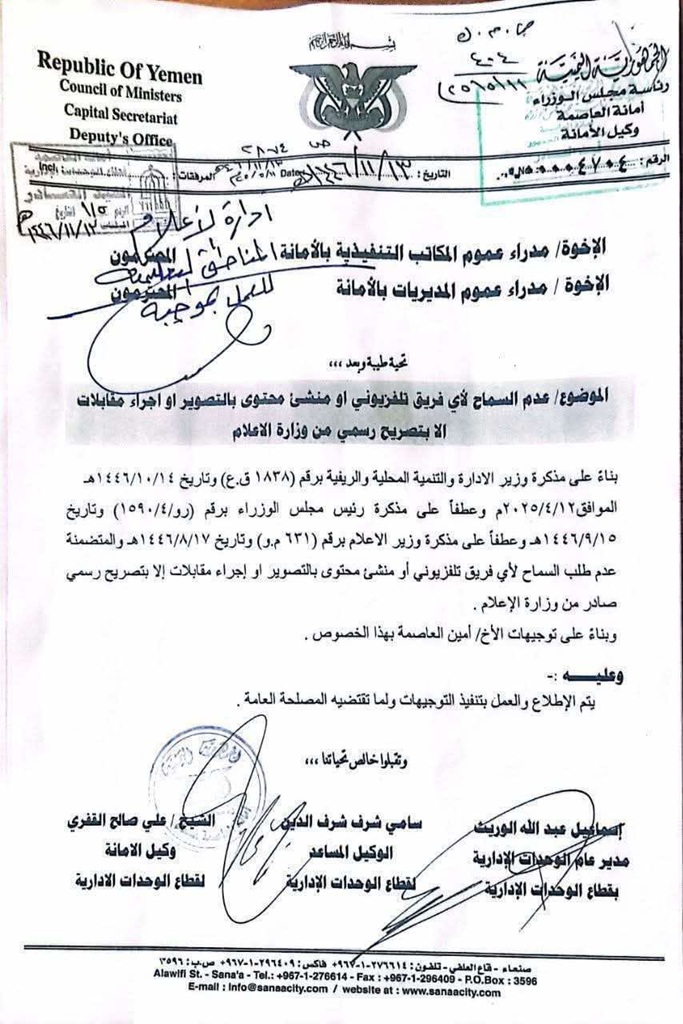 Republic Of Yemen
Council of Ministers
Capital Secretariat
Deputy's Office
بسم الله الرحمن الرحيم
الجمهورية اليمنية
رئاسة مجلس الوزراء
أمانة العاصمة
وكيل الأمانة
ص.م.ك
٤٠٤
الرقم: ٠٠٠٤٧٠٤ No.
التاريخ: ١٤٤٦/١١/١٣هـ Date
المرفقات: Incl
ادارة الإعلام
المناطق التعليمية
للعمل بموجبه
الإخوة/ مدراء عموم المكاتب التنفيذية بالأمانة المحترمون
الإخوة / مدراء عموم المديريات بالأمانة المحترمون
تحية طيبة وبعد ،،،
الموضوع/ عدم السماح لأي فريق تلفزيوني او منشئ محتوى بالتصوير او اجراء مقابلات
الا بتصريح رسمي من وزارة الاعلام
بناءً على مذكرة وزير الادارة والتنمية المحلية والريفية برقم (١٨٣٨ ق.ع) وتاريخ ١٤٤٦/١٠/١٤هـ
الموافق٢٠٢٥/٤/١٢م وعطفاً على مذكرة رئيس مجلس الوزراء برقم (رو/١٥٩٠/٤) وتاريخ
١٤٤٦/٩/١٥هـ وعطفاً على مذكرة وزير الاعلام برقم (٦٣١ م.و) وتاريخ ١٤٤٦/٨/١٧هـ والمتضمنة
عدم طلب السماح لأي فريق تلفزيوني أو منشئ محتوى بالتصوير او إجراء مقابلات إلا بتصريح رسمي
صادر من وزارة الإعلام .
وبناءً على توجيهات الأخ/ أمين العاصمة بهذا الخصوص .
وعليـــه :-
يتم الإطلاع والعمل بتنفيذ التوجيهات ولما تقتضيه المصلحة العامة .
وتقبلوا خالص تحياتنا ،،،
إسماعيل عبد الله الوريث
مدير عام الوحدات الإدارية
بقطاع الوحدات الإدارية
سامي شرف شرف الدين
الوكيل المساعد
لقطاع الوحدات الإدارية
الشيخ / علي صالح القفري
وكيل الامانة
لقطاع الوحدات الادارية
صنعاء - قاع العلفي - تلفون: ٢٧٦٦١٤-١-٩٦٧+ فاكس: ٢٩٦٤٠٩-١-٩٦٧+ ص.ب: ٣٥٩٦
Alawifi St. - Sana'a - Tel.: +967-1-276614 - Fax : +967-1-296409 - P.O.Box : 3596
E-mail : Info@sanaacity.com / website at : www.sanaacity.com